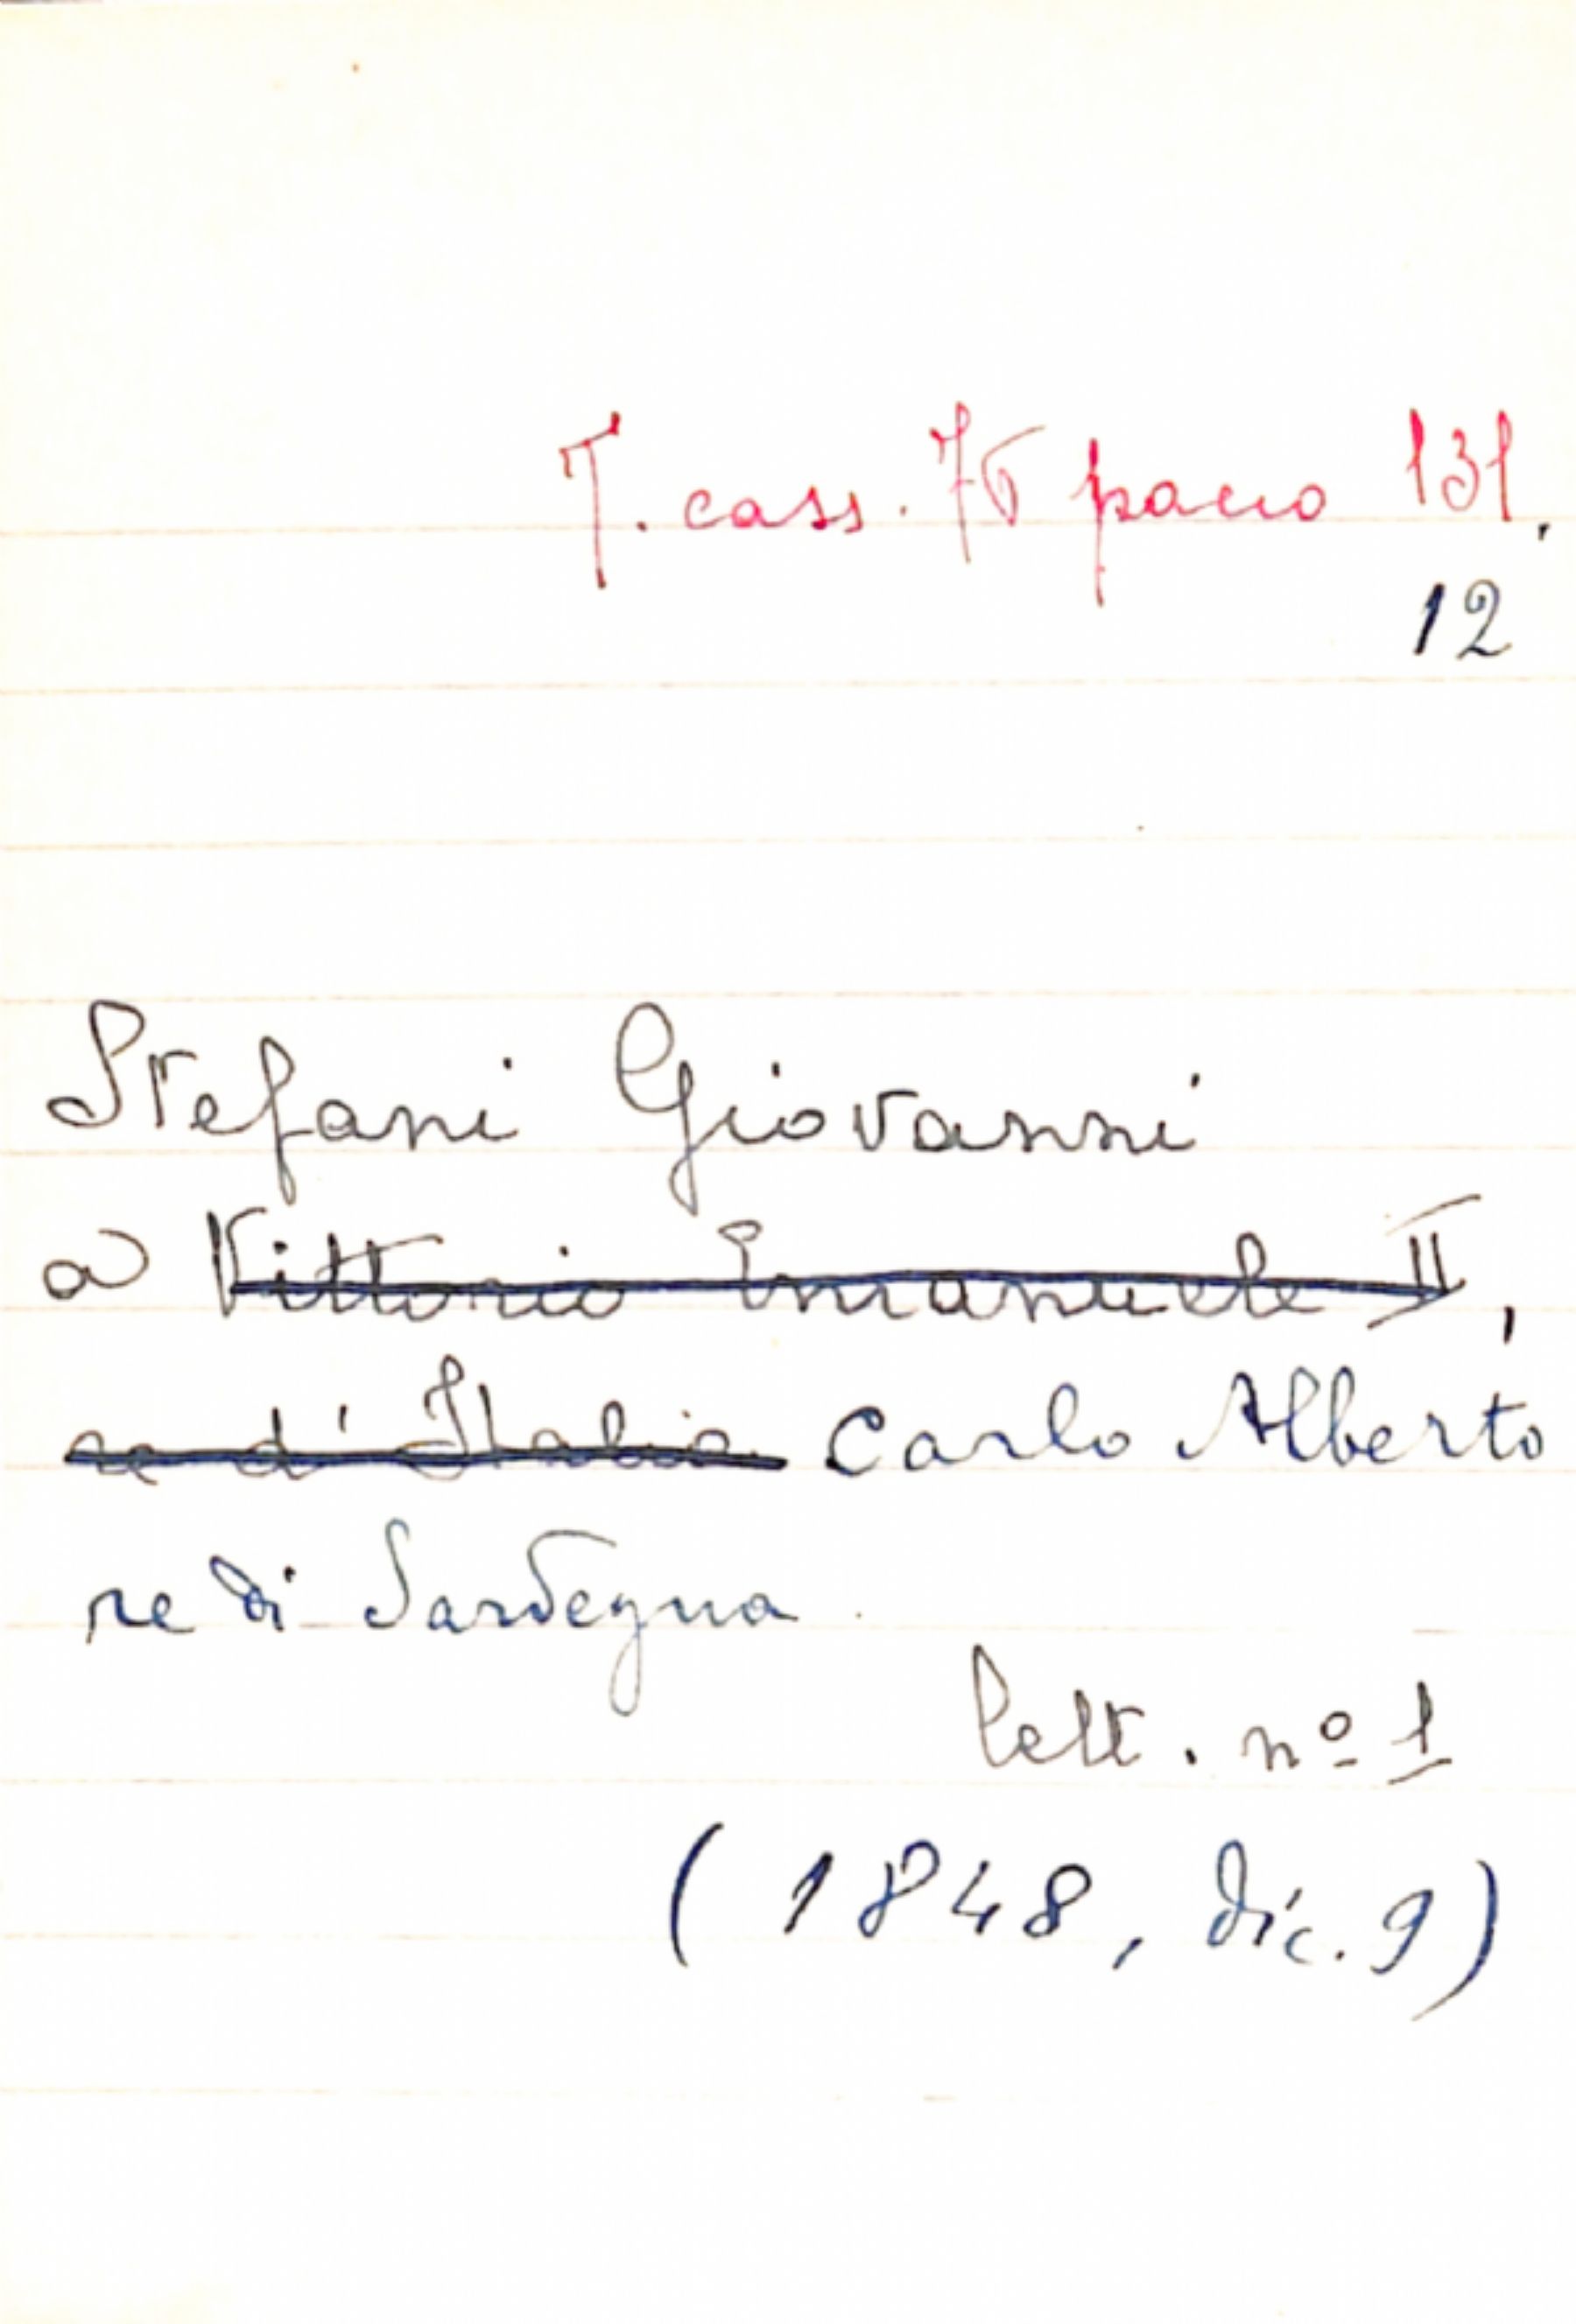 T. cass. 75 pacco 131.
12
Stefani Giovanni
a Vittorio Emanuele II,
re di Italia Carlo Alberto
re di Sardegna.
lett. nº 1
(1848, dic. 9)